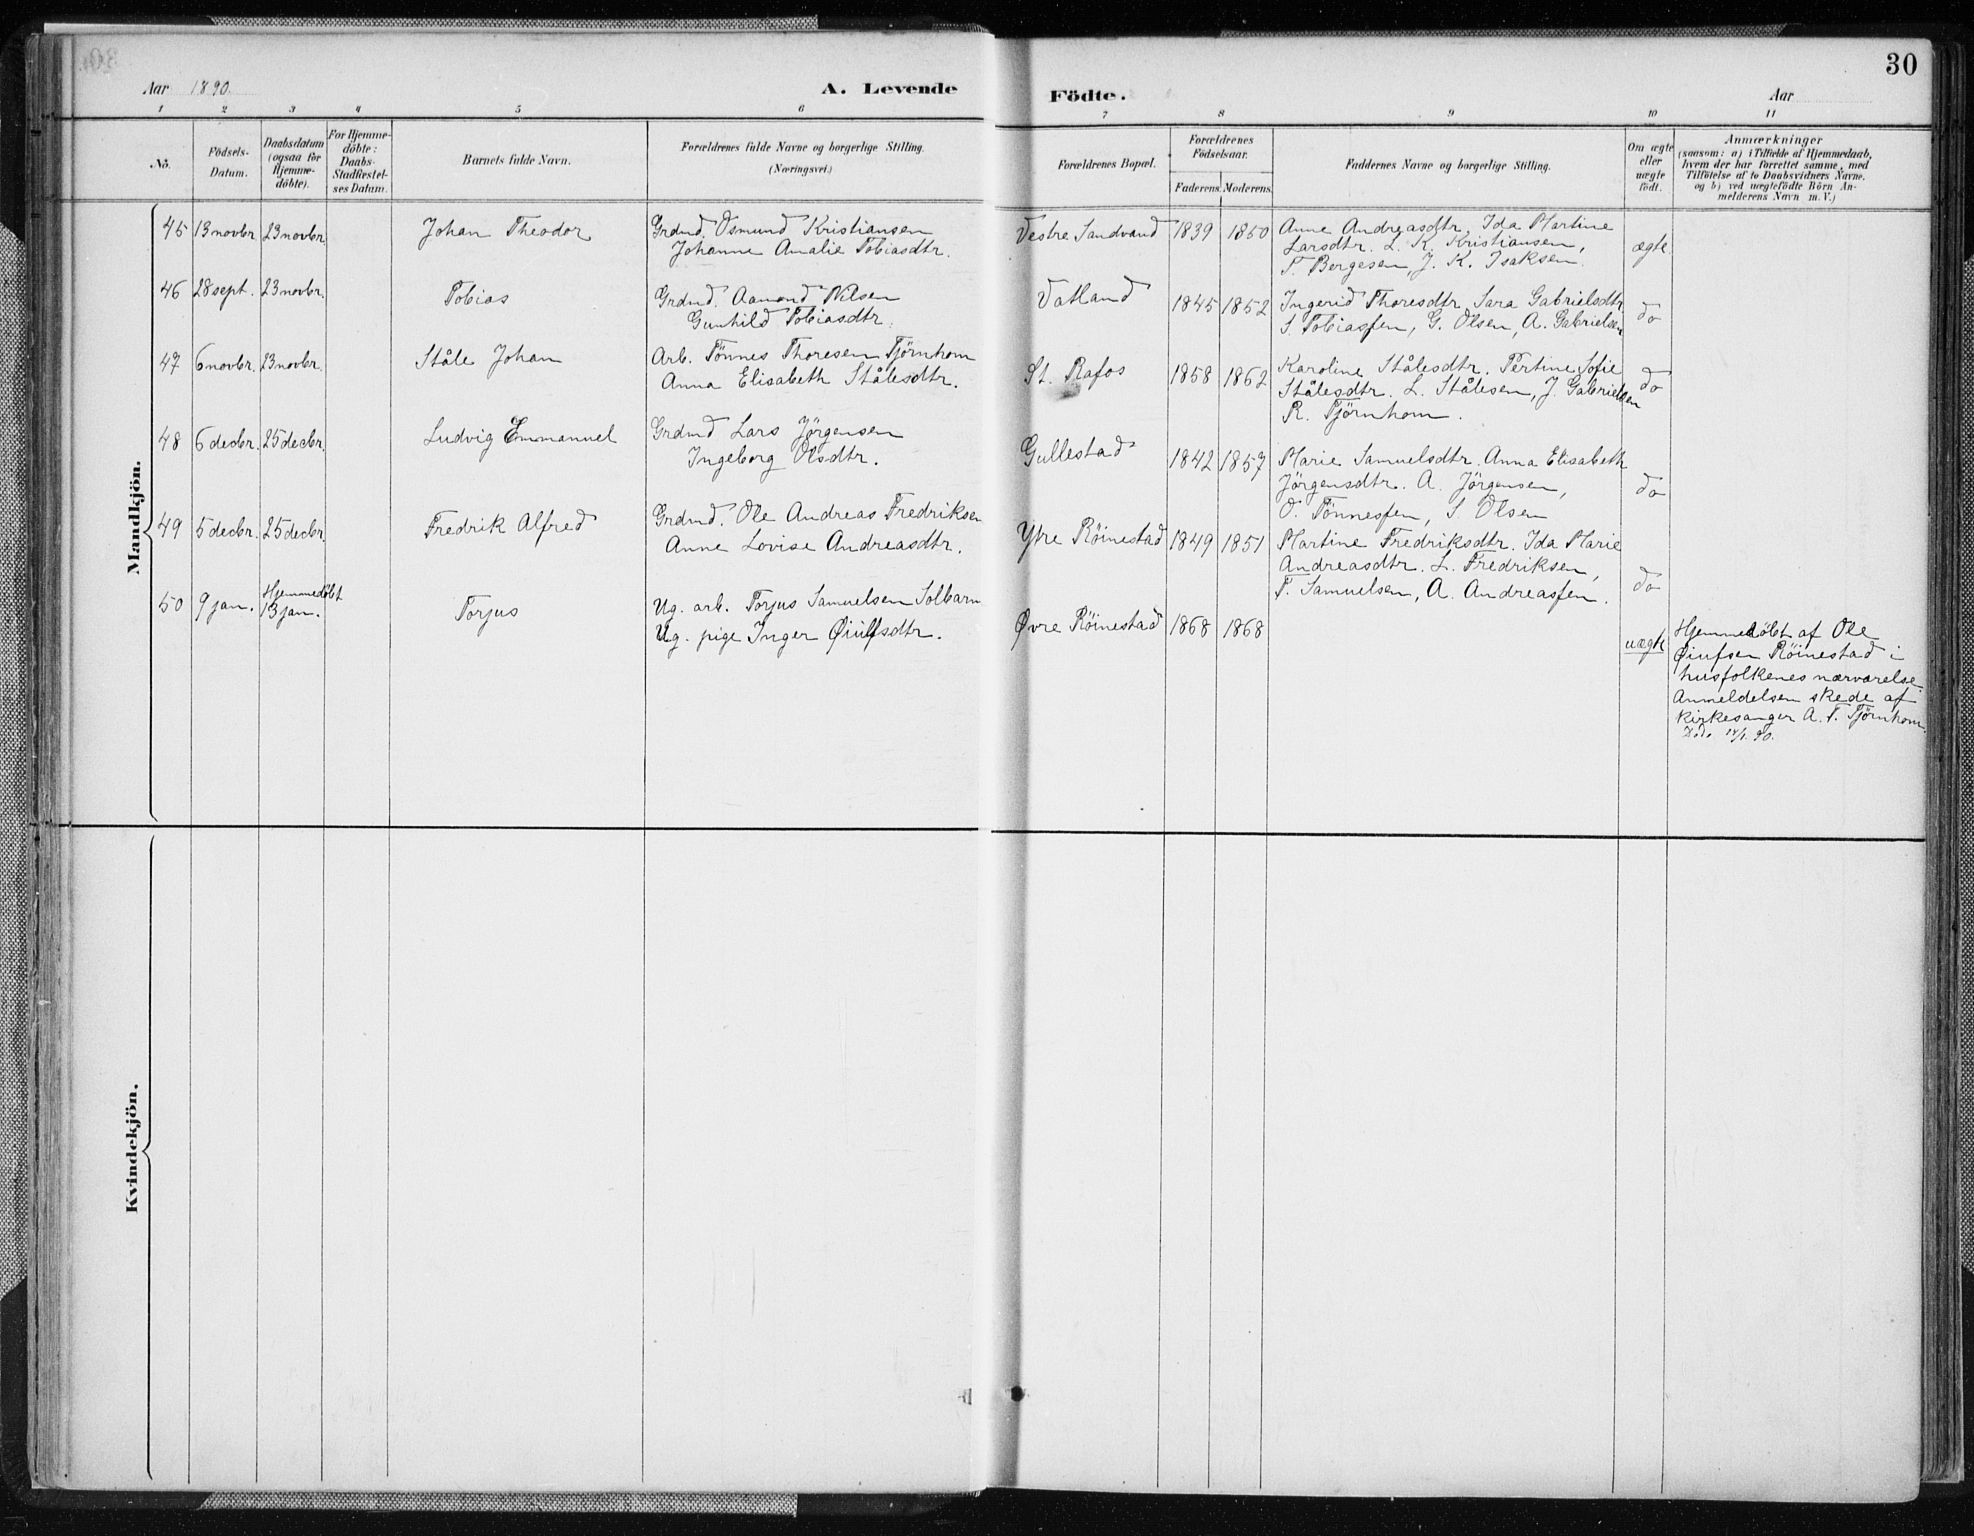 30
Aar 1890.
A. Levende Födte.
Aar
1 2 3 4 5 6 7 8 9 10 11
No.
Födsels-
Datum.
Daabsdatum
(ogsaa for
Hjemme-
döbte).
For Hjemme-
döbte:
Daabs-
Stadfæstel-
ses Datum.
Barnets fulde Navn.
Forældrenes fulde Navne og borgerlige Stilling.
(Næringsvei.)
Forældrenes Bopæl.
Forældrenes
Födselsaar.
Faderens. Moderens.
Faddernes Navne og borgerlige Stilling.
Om ægte
eller
uægte
födt.
Anmærkninger
(saasom: a) i Tilfælde af Hjemmedaab,
hvem der har forrettet samme, med
Tilföielse af to Daabsvidners Navne.
og b) ved uægtefödte Börn An-
melderens Navn m. V.)
Mandkjön.
45 13 novbr. 23 novbr. Johan Theodor
Grdmd. Osmund Kristiansen
Johanne Amalie Tobiasdtr.
Vestre Sandvand 1839 1850
Anne Andreasdtr. Ida Martine
Larsdtr. L. K. Kristiansen,
T. Bergesen, J. K. Isaksen.
ægte.
46 28 sept. 23 novbr. Tobias
Grdmd. Aamond Nilsen
Gunhild Tobiasdtr.
Vatland 1845 1852
Ingerid Thoresdtr. Sara Gabrielsdtr.
S. Tobiassen, G. Olsen, A. Gabrielsen
do
47 6 novbr. 23 novbr. Ståle Johan
Arb. Tönnes Thoresen Tjörnhom
Anna Elisabeth Stålesdtr.
St. Rafos 1858 1862
Karoline Ståledstr. Pertine Sofie
Ståledstr. L. Stålesen, J. Gabrielsen
R. Tjörnhom.
do
48 6 decbr. 25 decbr. Ludvig Emmanuel
Grdmd Lars Jörgensen
Ingeborg Olsdtr.
Gullestad 1842 1857
Marie Samuelsdtr. Anna Elisabeth
Jörgensdtr. A. Jörgensen,
O. Tönnessen, S. Olsen
do
49 5 decbr. 25 decbr. Fredrik Alfred
Grdmd. Ole Andreas Fredriksen
Anne Lovise Andreasdtr.
Ytre Röinestad 1849 1851
Martine Fredriksdtr. Ida Marie
Andreasdtr. L. Fredriksen,
T. Samuelsen, A. Andreassen.
do
50 9 jan. Hjemmedöbt
13 jan. Torjus
Ug. arb. Torjus Samuelsen Solbarn
Ug. pige Inger Øiulfsdtr.
Øvre Röinestad 1868 1868
uægte
Hjemmedöbt af Ole
Øiufsen Röinestad i
husfolkenes nærværelse.
Anmeldelsen skede af
kirkesanger A. T. Tjörnhom.
Kvindekjön.